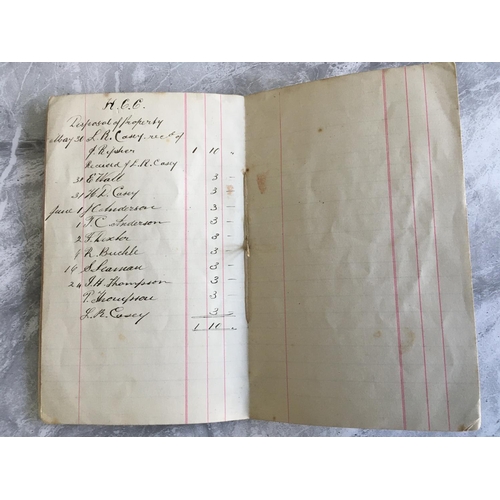 H. C. C.
Disposal of Property
May 30 L. R. Casey rec'd of
J. 1 10 "
Received of L. R. Casey
31 E Wall 3 -
31 H L Casey 3 -
June 1 J C Anderson 3 -
1 T. C. Anderson 3 -
2 F. 3 -
8 R. Buckle 3 -
14 S. Seaman 3 -
24 J. H. Thompson 3 -
P. Thompson 3
L. R. Casey 3 -
1 10 "